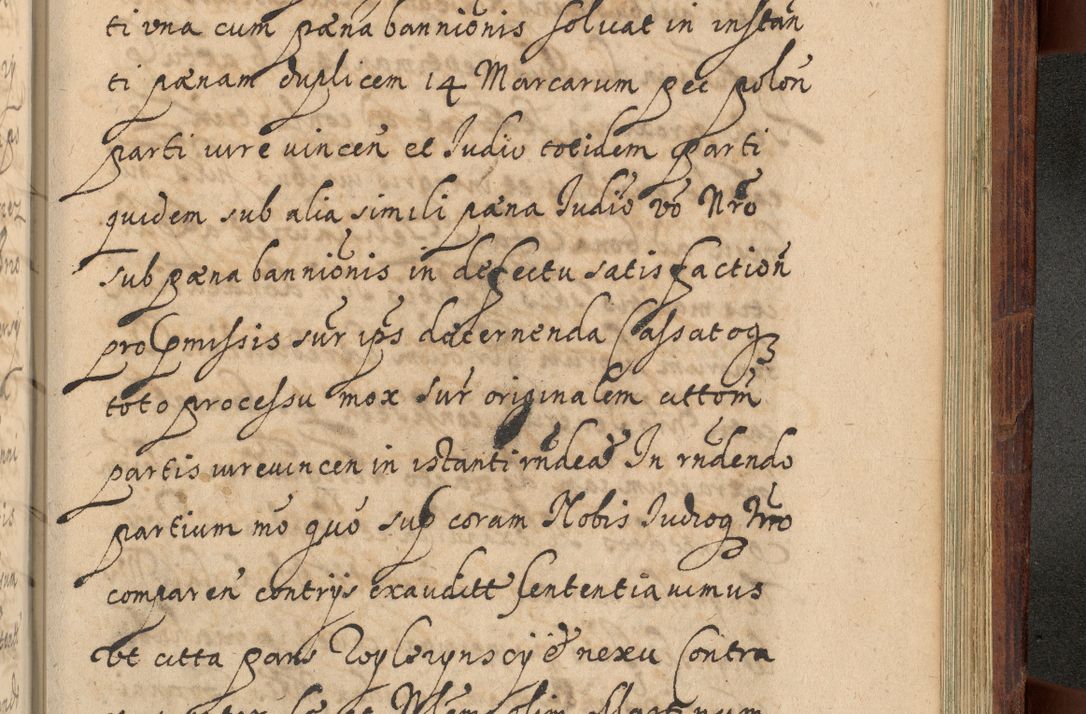 ti vna cum pæna bannionis soluat in instan
ti pænam duplicem 14 Marcarum pec polon
parti iure vincen et Iudio totidem parti
quidem sub alia simili pæna Iudio vo Nro
sub pæna bannionis in defectu satisfaction
pro pmissis sur ips decernenda Cassatoq
toto processu mox sur originalem cittom
partis iurevincen in istanti rndea In rndendo
partium mo quo sup coram Nobis Iudioq Nro
comparen contrijs exauditt sententiauimus
vt citta pars Woylezynscy nexu Contra